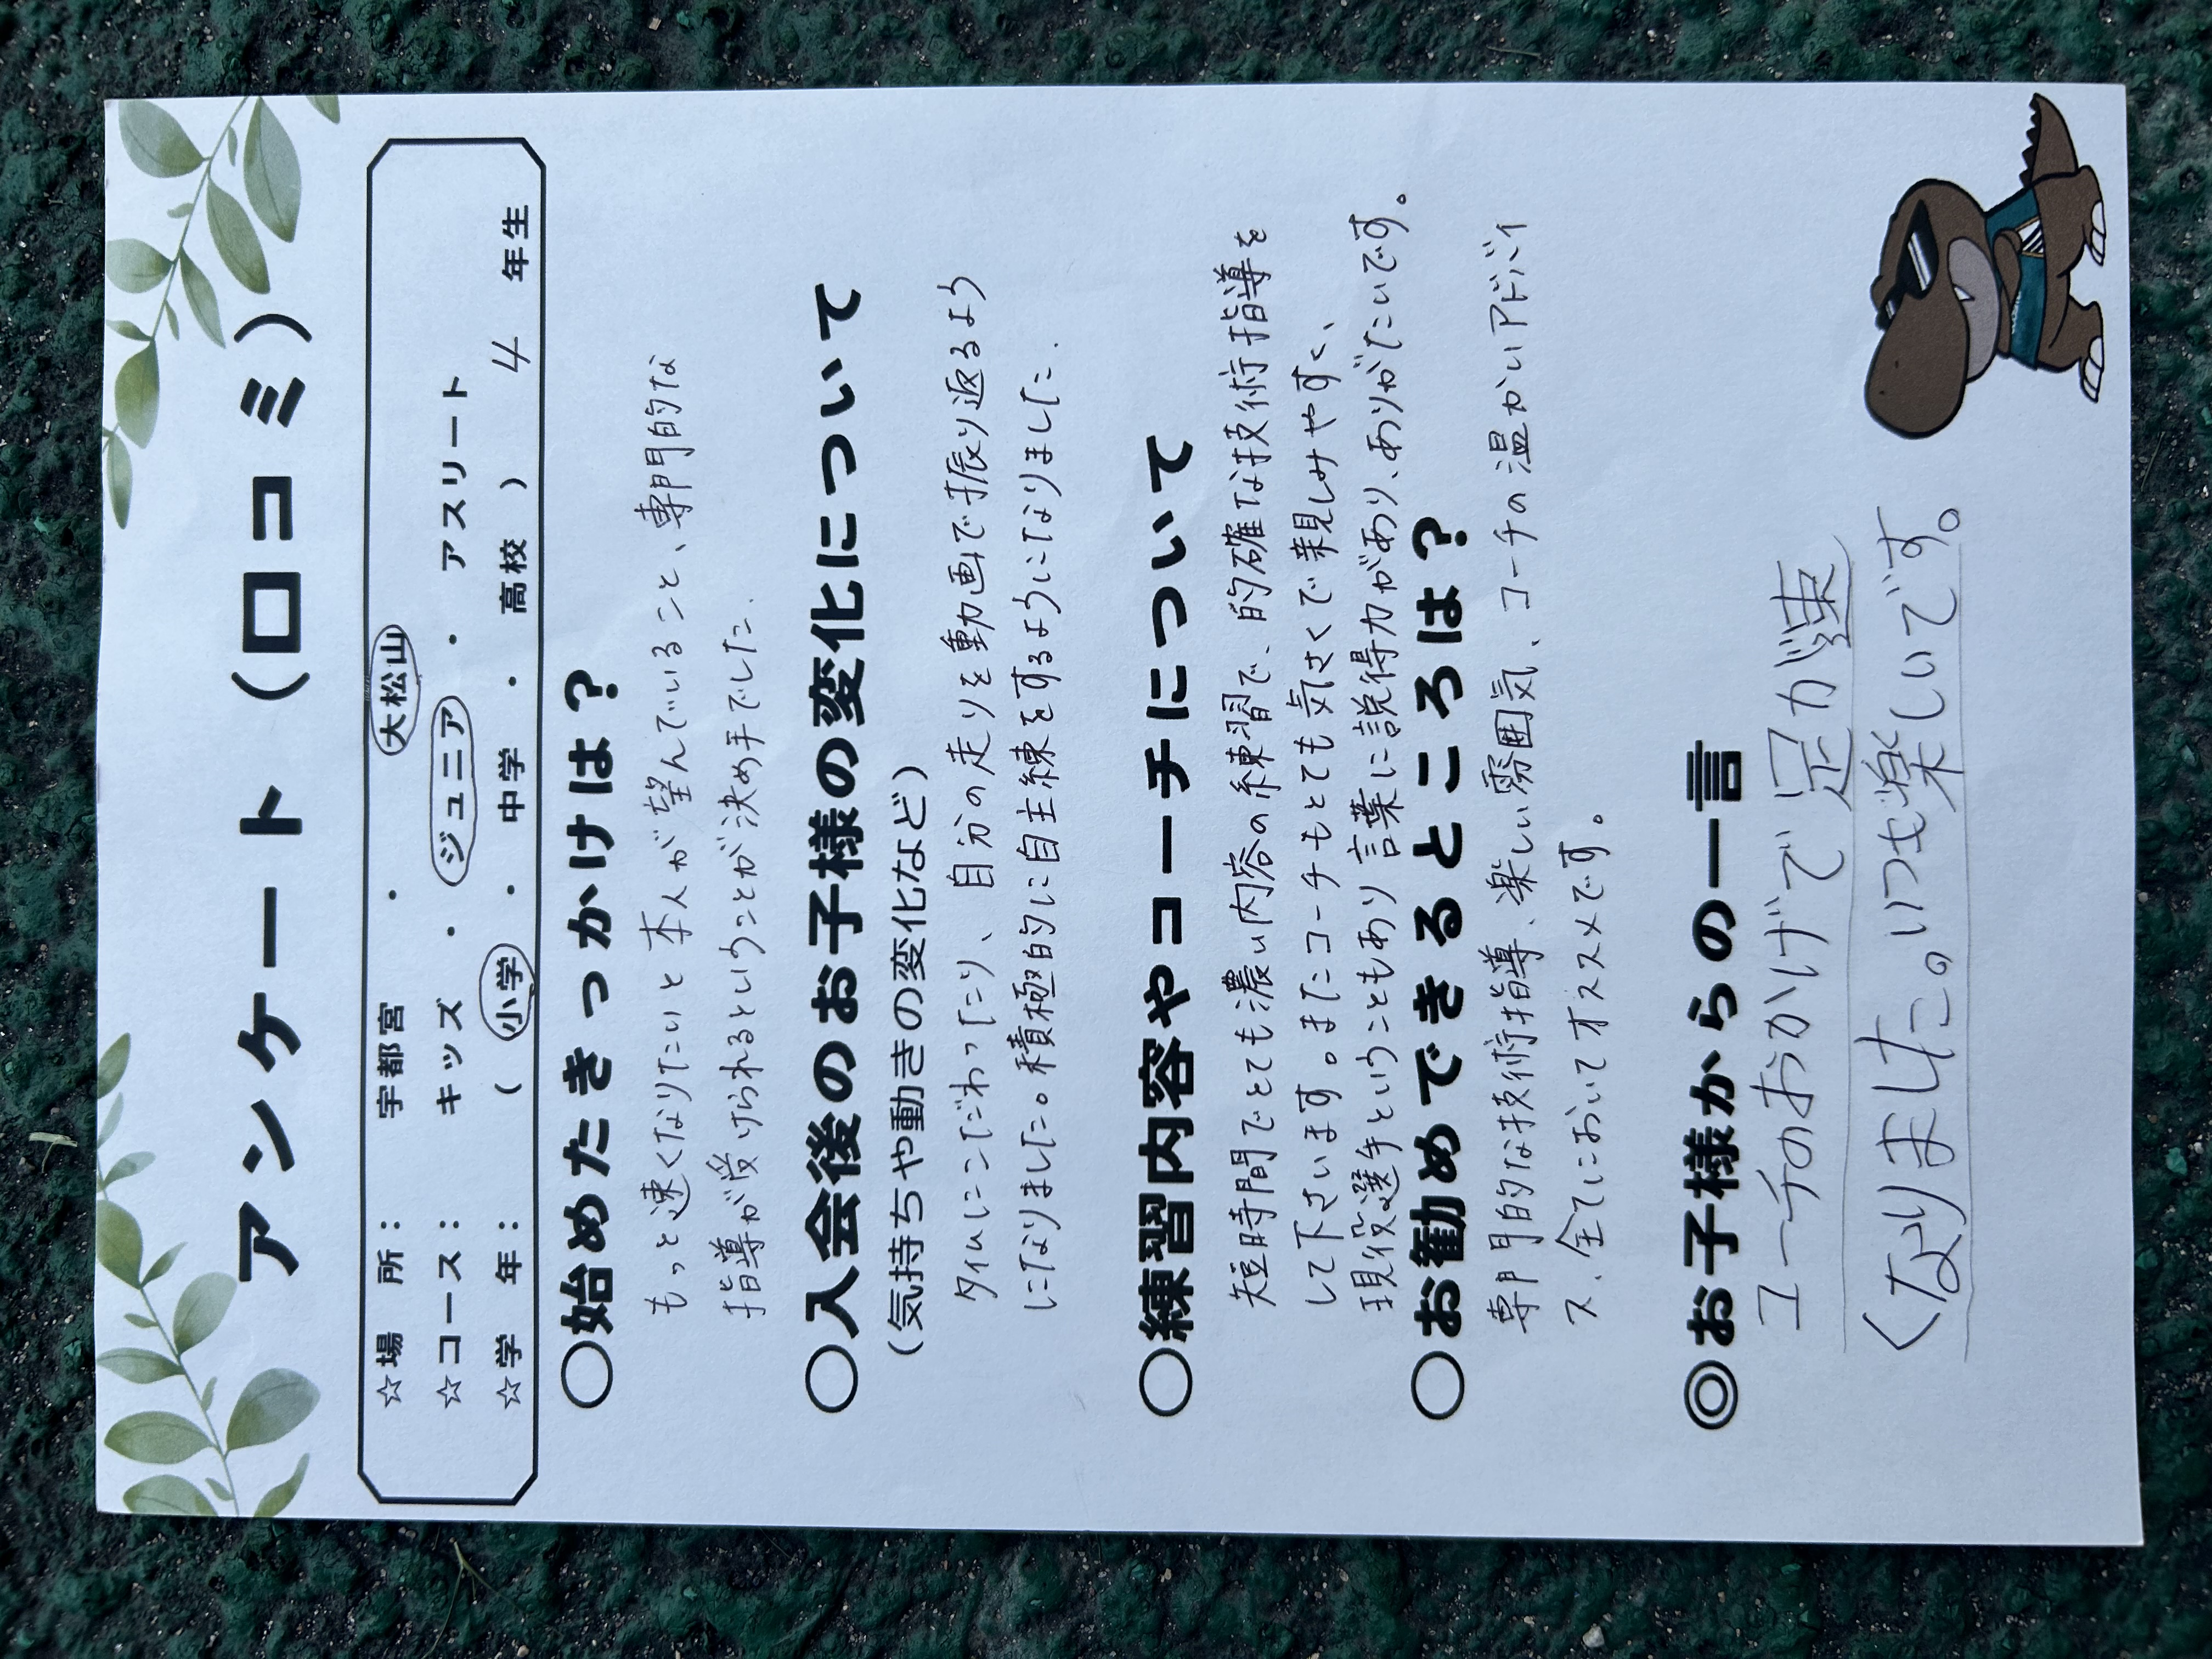 アンケート（口コミ）
☆場　所：　宇都宮　・　大松山
☆コース：　キッズ　・　ジュニア　・　アスリート
☆学　年：　（　小学　・　中学　・　高校　）　4　年生
○始めたきっかけは？
もっと速くなりたいと本人が望んでいること、専門的な
指導が受けられるということが決め手でした.
○入会後のお子様の変化について
（気持ちや動きの変化など）
タイムにこだわったり、自分の走りを動画で振り返るよう
になりました。積極的に自主練をするようになりました.
○練習内容やコーチについて
短時間でとても濃い内容の練習で、的確な技術指導を
して下さいます。またコーチもとても気さくで親しみやすく、
現役選手ということもあり言葉に説得力があり、ありがたいです。
○お勧めできるところは？
専門的な技術指導、楽しい雰囲気、コーチの温かいアドバイ
ス、全てにおいてオススメです。
◎お子様からの一言
コーチのおかげで足が速
くなりました。いつも楽しいです。